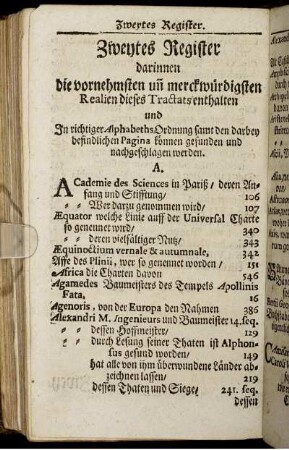 Zweytes Register.
Zweytes Register
darinnen
die vornehmsten uñ merckwürdigsten
Realien dieses Tractats enthalten
und
In richtiger Alphabeths-Ordnung samt den darbey
befindlichen Pagina können gefunden und
nachgeschlagen werden.
A.
Academie des Sciences in Pariß / deren An-
fang und Stifftung / 106
〃 〃 Wer darzu genommen wird / 107
Æquator welche Linie auff der Universal Charte
so genennet wird / 340
〃 〃 deren vielfältiger Nutz / 343
Æquinoctium vernale & autumnale, 342
Affe des Plinii, wer so genennet worden / 151
Africa die Charten davon 546
Agamedes Baumeisters des Tempels Apollinis
Fata. 16
Agenoris, von der Europa den Nahmen 386
Alexandri M. Ingenieurs und Baumeister 14. seq.
〃 〃 dessen Hoffmeister / 129
〃 〃 durch Lesung seiner Thaten ist Alphon-
sus gesund worden / 149
hat alle von ihm überwundene Länder ab-
zeichnen lassen / 219
dessen Thaten und Siege / 241. seq.
dessen